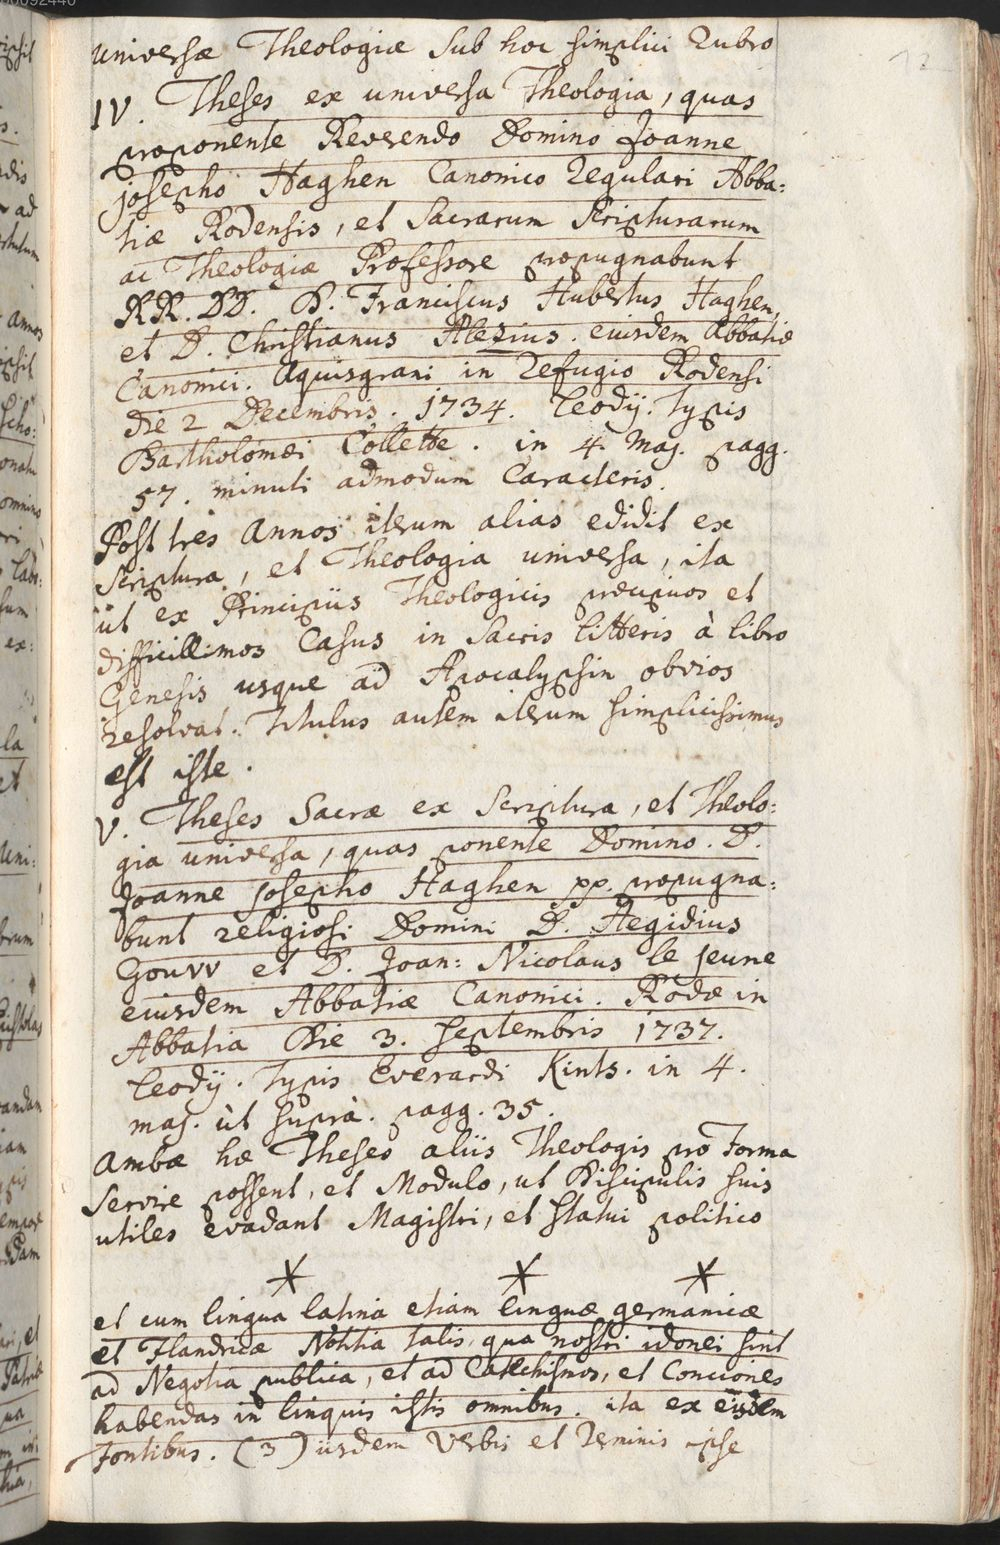 universæ Theologiæ sub hoc simplici Rubro
IV. Theses ex universa Theologia, quas
proponente Reverendo Domino Joanne
Josepho Haghen Canonico Regulari Abba:
tiæ Rodensis, et Sacrarum Scripturarum
ac Theologiæ Professore propugnabunt
RR. DD. D. Franciscus Hubertus Haghen,
et D. Christianus Alezius. eiusdem Abbatiæ
Canonici. Aquisgrani in Refugio Rodensi
die 2 Decembris. 1734. Leodij. Typis
Bartholomæi Collette. in 4. Maj. pagg.
57. minuti admodum Caracteris.
Post tres Annos iterum alias edidit ex
Scriptura, et Theologia universa, ita
ut ex Principiis Theologicis præcipuos et
difficillimos Casus in Sacris litteris à libro
Genesis usque ad Apocalypsin obvios
resolvat. Titulus autem iterum simplicissimus
est iste.
V. Theses Sacræ ex Scriptura, et Theolo:
gia universa, quas ponente Domino. D.
Joanne Josepho Haghen pp. propugna:
bunt religiosi Domini D. Aegidius
Gouvv et D. Joan: Nicolaus le jeune
eiusdem Abbatiæ Canonici. Rodæ in
Abbatia Die 3. Septembris 1737.
Leodij. Typis Everardi Kints. in 4.
maj. ùt suprà. pagg. 35.
Ambæ hæ Theses aliis Theologis pro Forma
servire possent, et Modulo, ut Discipulis suis
utiles evadant Magistri, et statui politico
* * *
et cum lingua latina etiam linguæ germanicæ
et Flandricæ Notitia talis, qua nostri idonei sint
ad Negotia publica, et ad Catechismos, et Conciones
habendas in linguis istis omnibus. ita ex eisdem
Fontibus. (3) iisdem Verbis et Terminis ipse